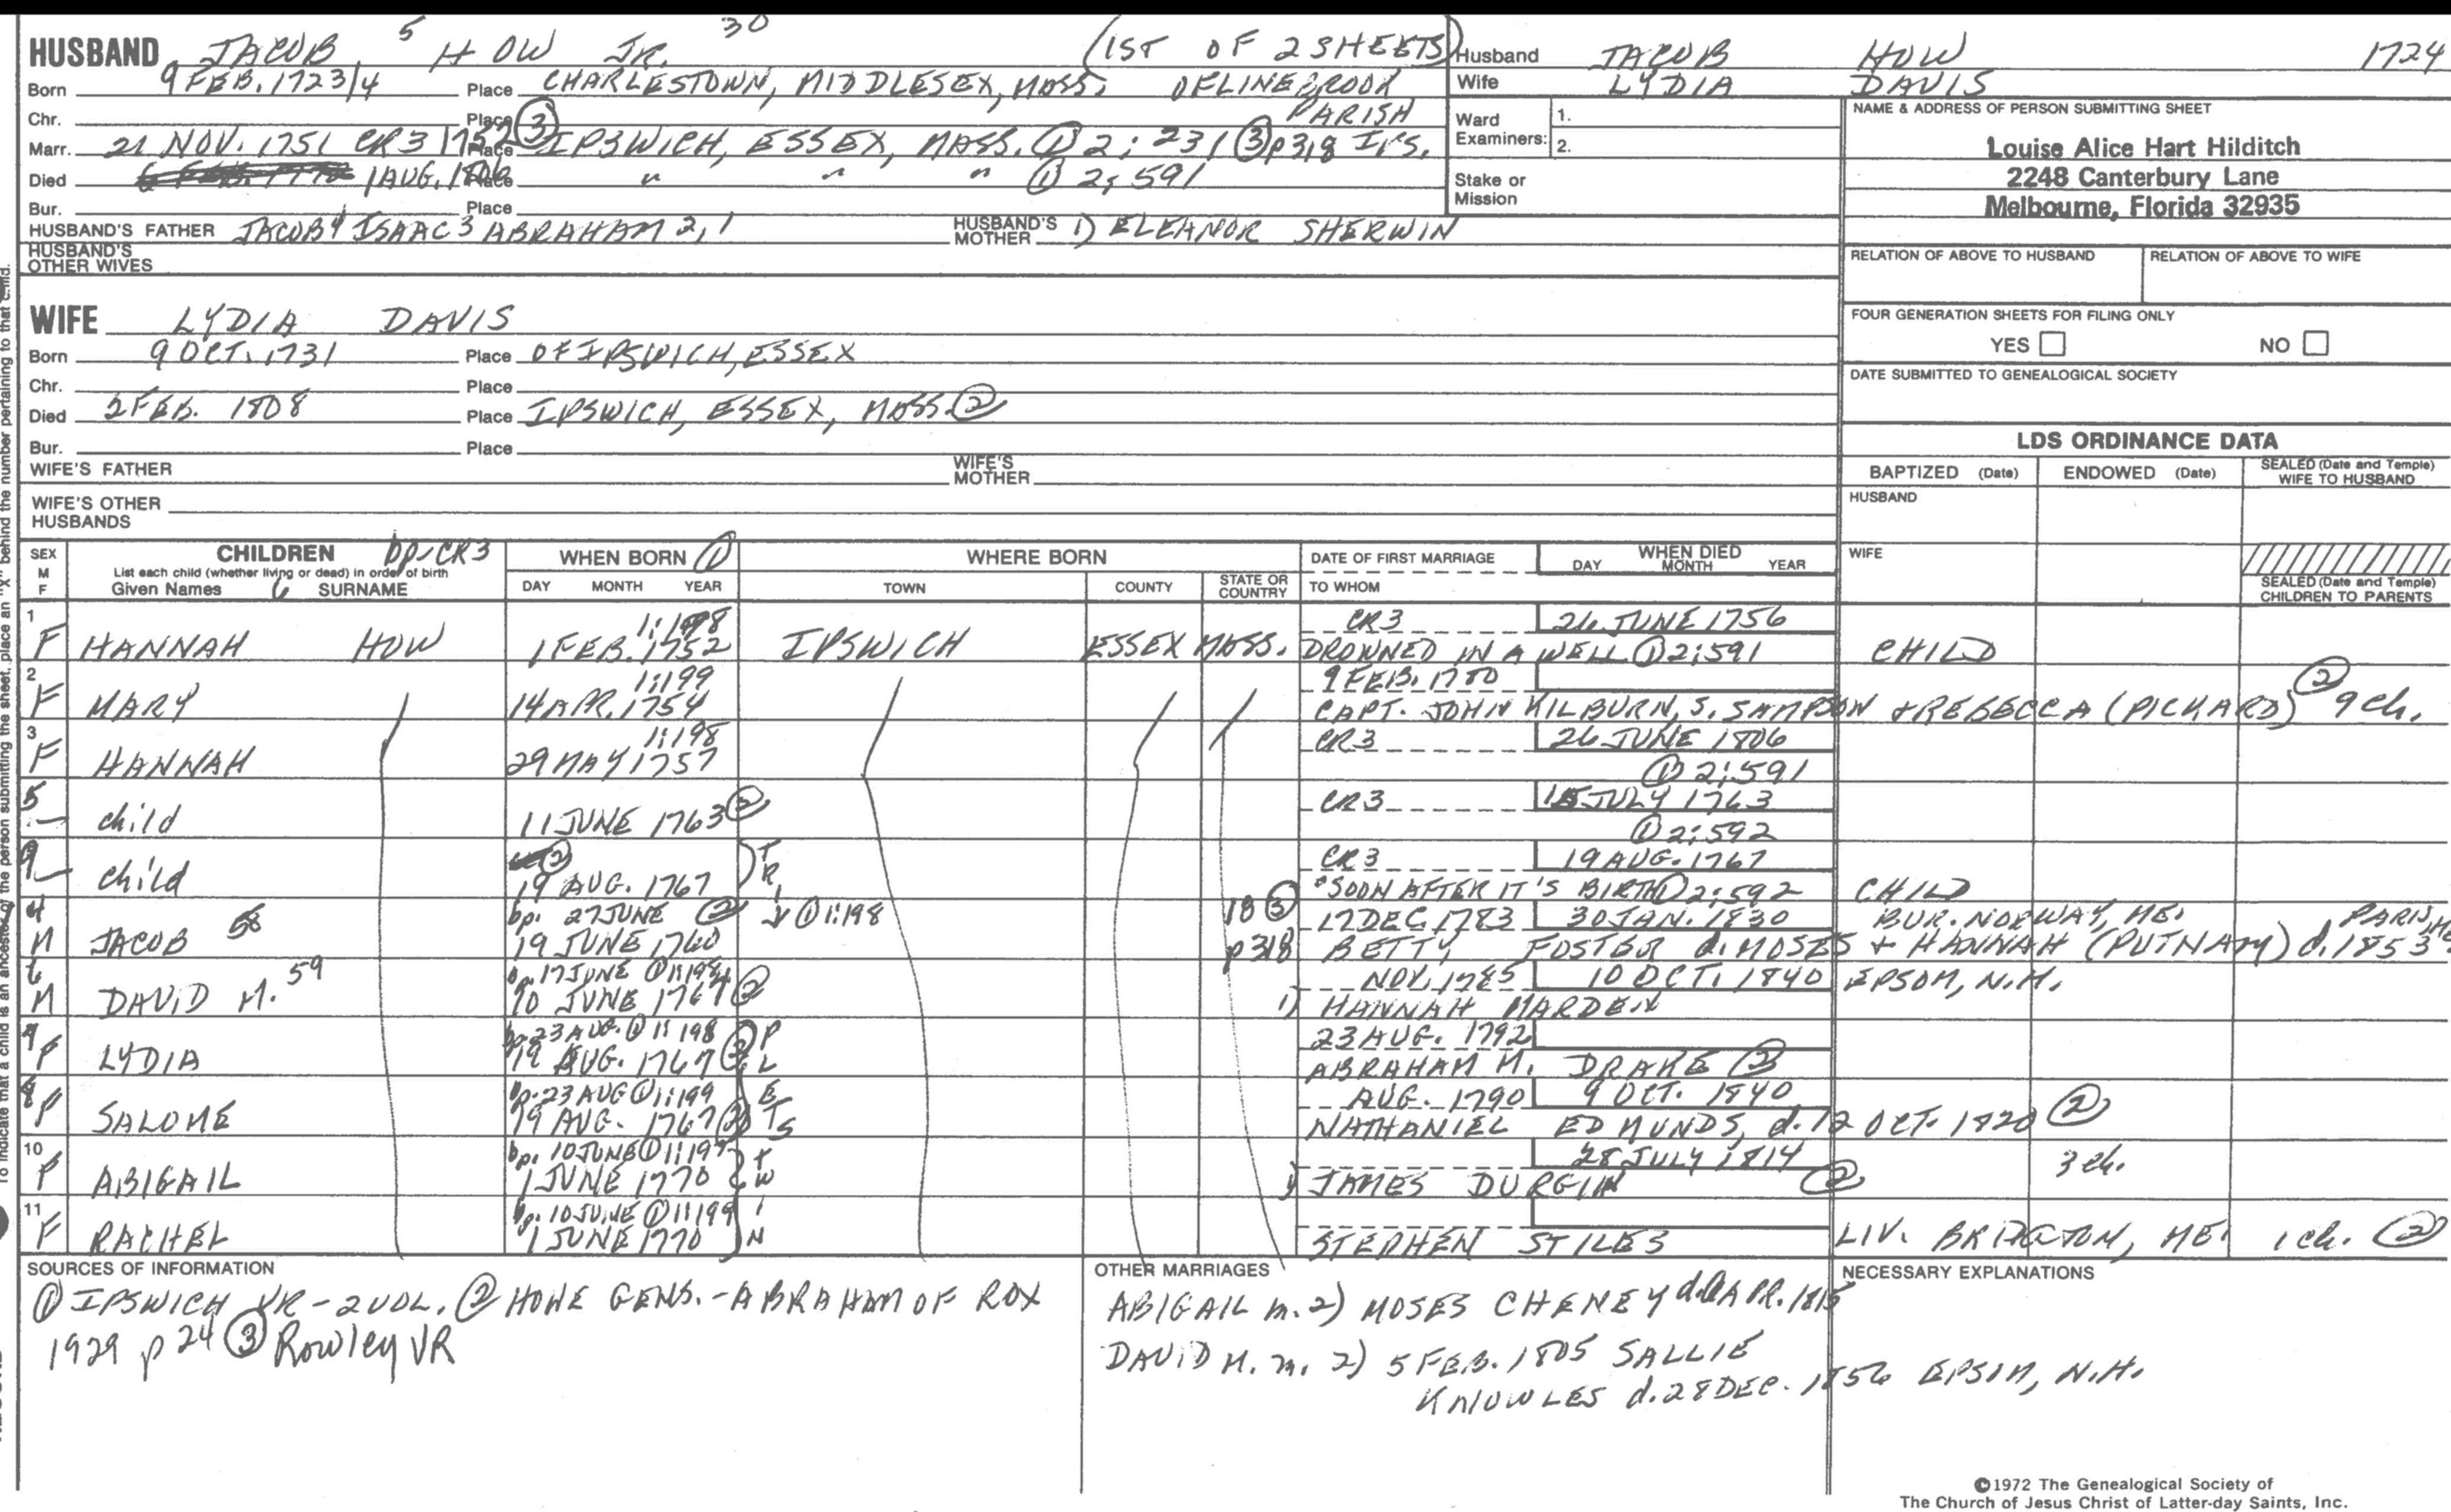 HUSBAND JACOB 5 HOW JR. 30 (1ST OF 2 SHEETS)
Born 9 FEB. 1723/4 Place CHARLESTOWN, MIDDLESEX, MASS. OF LINEBROOK
Chr. Place PARISH
Marr. 21 NOV. 1751 CR3 1752 ③ Place IPSWICH, ESSEX, MASS. ① 2:231 ③ p318 IPS.
Died 1 AUG. 1806 Place " " " ① 2:591
Bur. Place
HUSBAND'S FATHER JACOB4 ISAAC3 ABRAHAM 2,1 HUSBAND'S MOTHER 1) ELEANOR SHERWIN
HUSBAND'S OTHER WIVES
Husband JACOB HOW 1724
Wife LYDIA DAVIS
Ward Examiners: 1.
2.
Stake or Mission
NAME & ADDRESS OF PERSON SUBMITTING SHEET
Louise Alice Hart Hilditch
2248 Canterbury Lane
Melbourne, Florida 32935
RELATION OF ABOVE TO HUSBAND RELATION OF ABOVE TO WIFE
WIFE LYDIA DAVIS
Born 9 OCT. 1731 Place OF IPSWICH, ESSEX
Chr. Place
Died 2 FEB. 1808 Place IPSWICH, ESSEX, MASS. ②
Bur. Place
WIFE'S FATHER WIFE'S MOTHER
WIFE'S OTHER HUSBANDS
FOUR GENERATION SHEETS FOR FILING ONLY
YES NO
DATE SUBMITTED TO GENEALOGICAL SOCIETY
LDS ORDINANCE DATA
BAPTIZED (Date) ENDOWED (Date) SEALED (Date and Temple) WIFE TO HUSBAND
HUSBAND
WIFE
SEALED (Date and Temple) CHILDREN TO PARENTS
SEX M F
CHILDREN bp-CR3
List each child (whether living or dead) in order of birth
Given Names SURNAME
WHEN BORN ①
DAY MONTH YEAR
WHERE BORN
TOWN COUNTY STATE OR COUNTRY
DATE OF FIRST MARRIAGE
TO WHOM
WHEN DIED
DAY MONTH YEAR
1 1:198 CR3 26 JUNE 1756
F HANNAH HOW 1 FEB. 1752 IPSWICH ESSEX MASS. DROWNED IN A WELL ① 2:591 CHILD
2 1:199 9 FEB. 1780
F MARY 14 APR. 1754 CAPT. JOHN KILBURN, S. SAMPSON + REBECCA (PICKARD) ② 9 ch.
3 1:198 CR3 26 JUNE 1806
F HANNAH 29 MAY 1757 ① 2:591
5 CR3 15 JULY 1763
- child 11 JUNE 1763 ② ① 2:592
9 ② CR3 19 AUG. 1767
- child 19 AUG. 1767 T R I "SOON AFTER IT'S BIRTH ① 2:592 CHILD
4 bp. 27 JUNE ② ① 1:198 18 ③ 17 DEC. 1783 30 JAN. 1830 BUR. NORWAY, ME. PARIS, ME.
M JACOB 58 19 JUNE 1760 p318 BETTY FOSTER d. MOSES + HANNAH (PUTNAM) d. 1853
6 bp. 17 JUNE ① 1:198 NOV. 1785 10 OCT. 1840 EPSOM, N.H.
M DAVID M. 59 10 JUNE 1764 ② 1) HANNAH MARDEN
7 bp. 23 AUG. ① 1:198 P 23 AUG. 1792
F LYDIA 19 AUG. 1767 ② L ABRAHAM M. DRAKE ②
8 bp. 23 AUG ① 1:199 E AUG. 1790 9 OCT. 1840
F SALOME 19 AUG. 1767 ② T S NATHANIEL EDMUNDS, d. 12 OCT. 1820 ②
10 bp. 10 JUNE ① 1:197 T 28 JULY 1814 3 ch.
F ABIGAIL 1 JUNE 1770 W 1) JAMES DURGIN ②
11 bp. 10 JUNE ① 1:199 I
F RACHEL 1 JUNE 1770 N STEPHEN STILES LIV. BRIDGTON, ME. 1 ch. ②
SOURCES OF INFORMATION
① IPSWICH VR - 2 VOL. ② HOWE GENS. - ABRAHAM OF ROX
1929 p 24 ③ Rowley VR
OTHER MARRIAGES
ABIGAIL m. 2) MOSES CHENEY d. APR. 1815
DAVID M. m. 2) 5 FEB. 1805 SALLIE
KNOWLES d. 28 DEC. 1856 EPSOM, N.H.
NECESSARY EXPLANATIONS
©1972 The Genealogical Society of
The Church of Jesus Christ of Latter-day Saints, Inc.
To indicate that a child is an ancestor of the person submitting the sheet, place an "X" behind the number pertaining to that child.